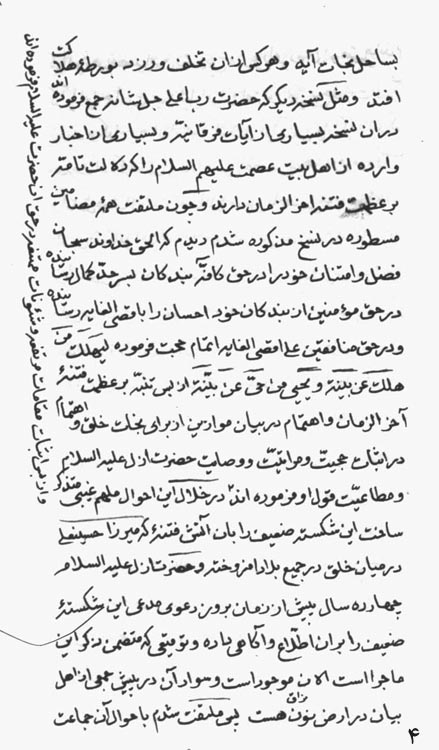 بساحل نجات آید و هر کس از آن تخلف ورزد بورطهٔ هلاکت
افتد و مثل نسخه دیگر که حضرت رب اعلی جل شانه جمع فرموده اند
در آن نسخه بسیاری از آیات فرقانیه و بسیاری از اخبار
وارده از اهل بیت عصمت علیهم السلام را که دلالت تامه
بر عظمت فتنه آخر الزمان دارند و چون ملتفت همه مضامین
مسطوره در نسخ مذکوره شدم دیدم که الحق خداوند سبحان
فضل و امتنان خود را در حق کافهٔ بندکان بسر حد کمال رسانیده
در حق مؤمنین از بندکان خود احسان را باقصی الغایه رسانیده
و در حق منافقین علی اقصی الغایه اتمام حجت فرموده لیهلک من
هلک عن بینة و یحیی من حی عن بینة از بس تنبه بر عظمت فتنهٔ
آخر الزمان و اهتمام در بیان موازین از برای نجات خلق و اهتمام
در اثبات حجیت و مرآتیت و وصایت حضرت ازل علیه السلام
و مطاعیت قول او فرموده اند در خلال این احوال ملهم غیبی متذکر
ساخت این شکسته ضعیف را بان آتش فتنهٔ که میرزا حسینعلی
در میان خلق در جمیع بلاد افروخته و حضرت ازل علیه السلام
چهارده سال پیش از زمان بروز دعوی مدعی این شکستهٔ
ضعیف را بران اطلاع و آکاهی داده و توقیعی که متضمن ذکر این
ماجرا است الان موجود است و سواد آن در پیش جمعی از اهل
بیان در ارض نون هست پس ملتفت شدم باحوال آن جماعت
نراق
و از بس اثبات مقامات مرتفعه و شئونات ممتنعه در حق آن حضرت علیه السلام فرموده اند
۴